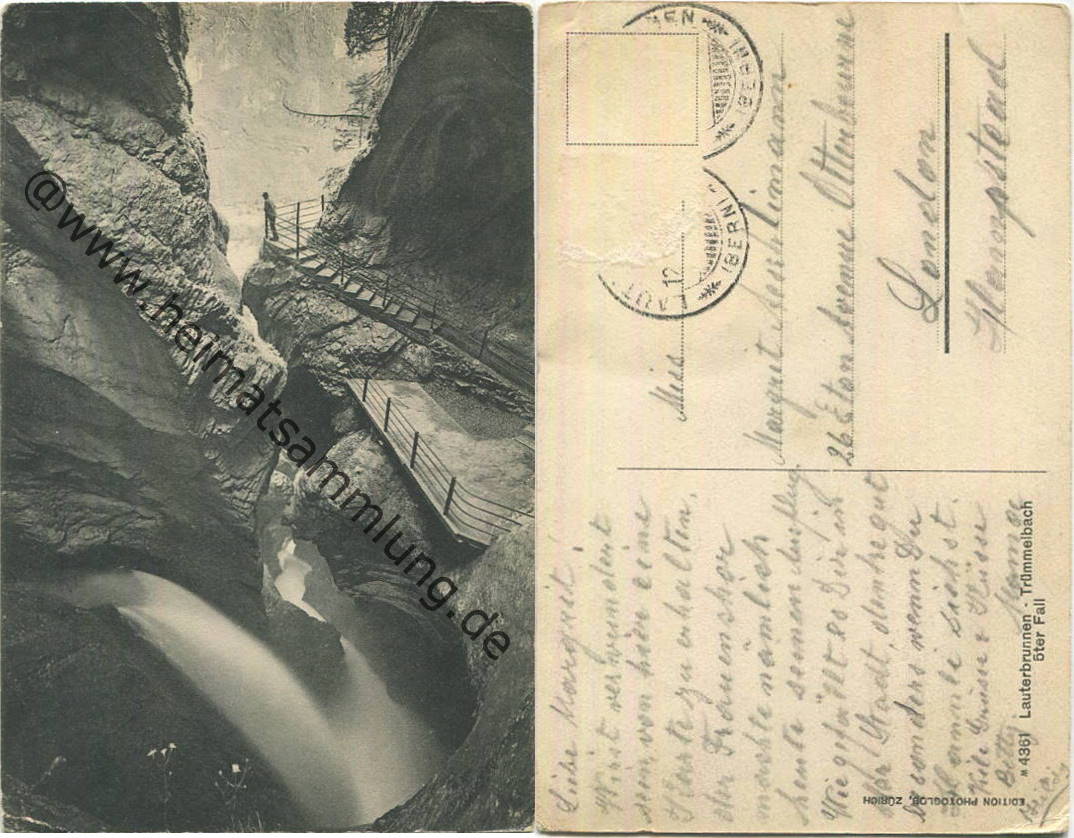 @www.heimatsammlung.de
LAUT
12
(BERN)
(BERN)
Miss
Margrit
26 Eton Avenue
London
Hampstead
Liebe Margrit!
Wirst verwundert
sein, von hier eine
Karte zu erhalten,
der Frauenchor
machte nämlich
heute seinen Ausflug
Wie gefällt es Dir in
der Stadt, denke gut
besonders wenn Du
sichst.
Viele Grüsse & Küsse
Betty
Mama
№ 4361 Lauterbrunnen - Trümmelbach
5ter Fall
EDITION PHOTOGLOB, ZÜRICH